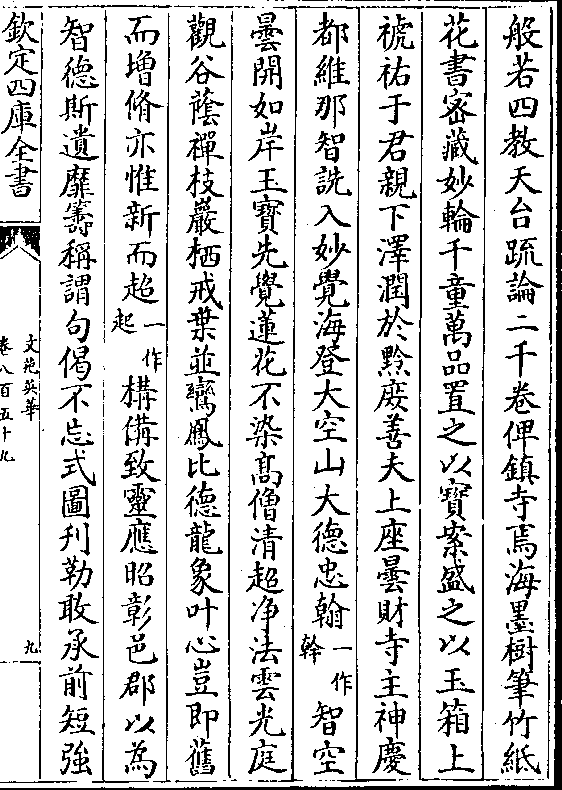 般若四教天台䟽論二千卷俾鎮寺焉海墨樹筆竹紙
花書宻藏妙輪千童萬品置之以寶案盛之以玉箱上
禠祐于君親下澤潤於黔庻善夫上座曇財寺主神慶
都維那智詵入妙覺海登大空山大德忠翰一作幹智空
曇開如岸玉寳先覺蓮花不染髙僧清超浄法雲光庭
觀谷蔭禪枝巖栖戒葉並鸞鳳比德龍象叶心豈即舊
而増脩亦惟新而超一作起構備致靈應昭彰邑郡以為
智德斯遺靡籌稱謂句偈不忘式圖刋勒敢承前短強
欽定四庫全書
文苑英華
卷八百五十九
九